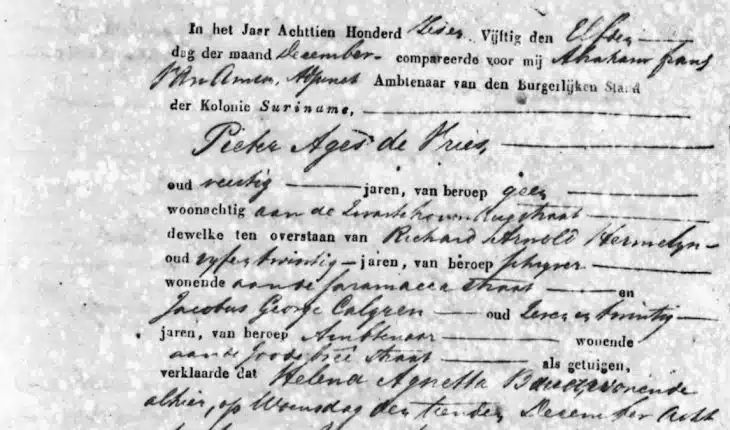 In het Jaar Achttien Honderd Zes en Vijftig den Elfden
dag der maand December compareerde voor mij Abraham frans
Adjunct Ambtenaar van den Burgerlijken Stand
der Kolonie Suriname,
Pieter Ages de Vries,
oud veertig jaren, van beroep geen
woonachtig aan de Zwartenhovenbrugstraat
dewelke ten overstaan van Richard Arnold Hermelyn
oud vyf en twintig jaren, van beroep schryver
wonende aan de Saramacca straat en
Jacobus George Calgren oud Zeven en twintig
jaren, van beroep Ambtenaar wonende
aan de Joode breê straat als getuigen,
verklaarde dat Helena Agnetta wonende
alhier, op Woensdag den tienden December Acht